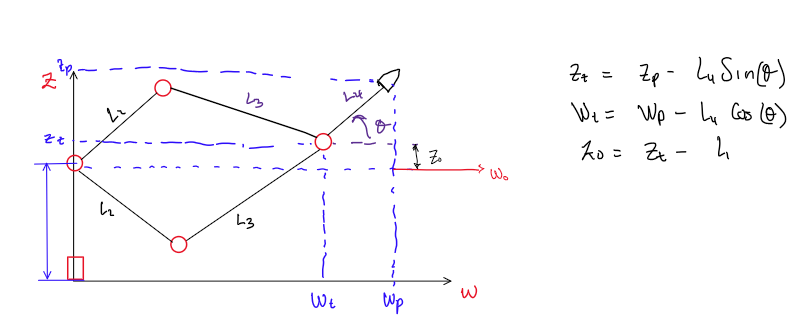 Zp
Z
L2
L3
L4
θ
Zt
Z₀
W₀
L2
L3
Wt
Wp
W
Zt = Zp - L4 Sin(θ)
Wt = Wp - L4 Cos(θ)
Z₀ = Zt - L1